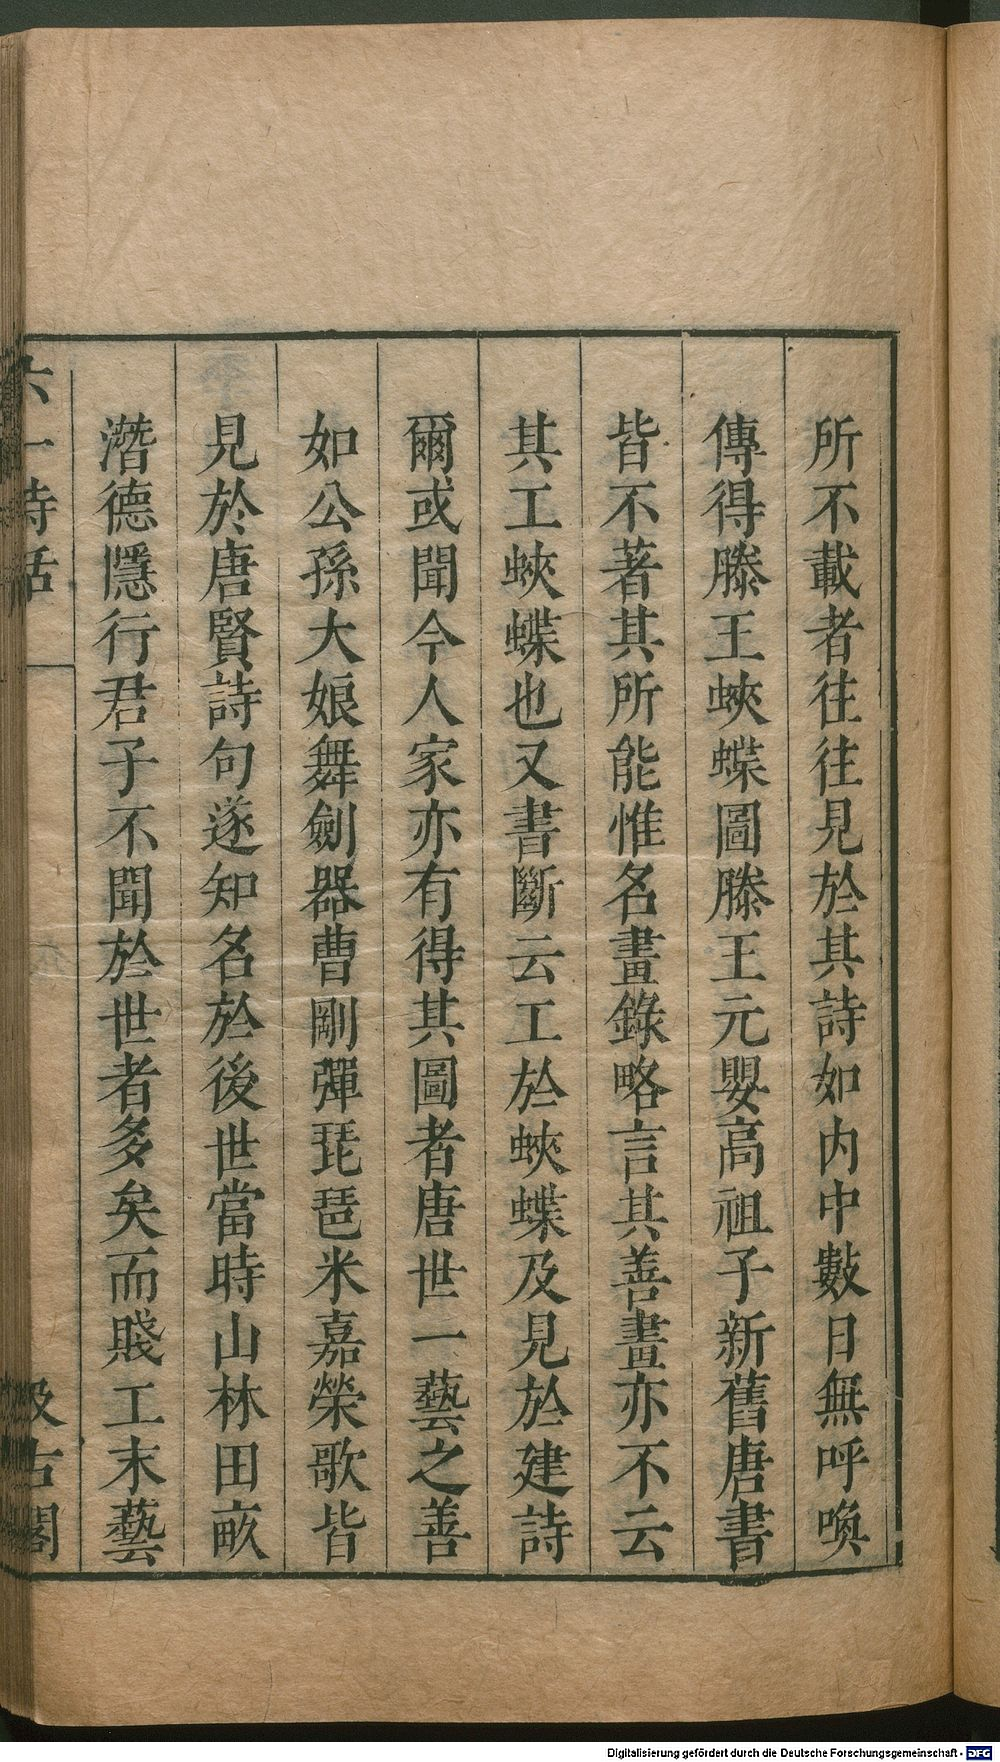 所不載者往往見於其詩如内中數日無呼喚
傳得滕王蛺蝶圖滕王元嬰高祖子新舊唐書
皆不著其所能惟名畫錄略言其善畫亦不云
其工蛺蝶也又書斷云工於蛺蝶及見於建詩
爾或聞今人家亦有得其圖者唐世一藝之善
如公孫大娘舞劍器曹剛彈琵琶米嘉榮歌皆
見於唐賢詩句遂知名於後世當時山林田畝
潛德隱行君子不聞於世者多矣而賤工末藝
六一詩話
汲古閣
Digitalisierung gefördert durch die Deutsche Forschungsgemeinschaft - DFG